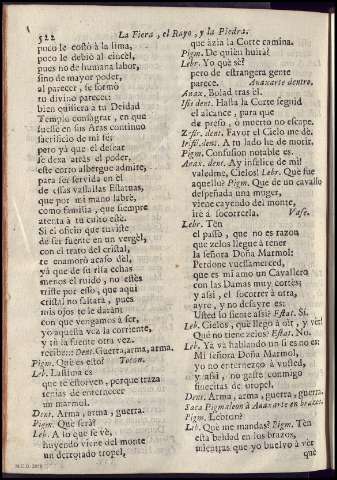 522
La Fiera, el Rayo, y la Piedra.
poco le costò à la lima,
poco le debiò al cincèl,
pues no de humana labor,
sino de mayor poder,
al parecer, se formò
tu divino parecer:
bien quisiera à tu Deidad
Templo consagrar, en que
fuesse en sus Aras continuo
sacrificio de mi fee;
pero yà que el desear
se dexa atràs el poder,
este corto albergue admite,
para ser servida en èl
de essas vassallas Estatuas,
que por mi mano labrè,
como familia, que siempre
atenta à tu culto estè.
Si el oficio que tuviste
de ser fuente en un vergèl,
con el trato del cristal,
te enamorò acaso dèl,
yà que de su risa echas
menos el ruido, no estès
triste por esso, que aqui
cristal no faltarà, pues
mis ojos te le daràn
con que vengamos à ser,
yo aquessa viva la corriente,
y tù la fuente otra vez
recibe::- Dent. Guerra, arma, arma.
Pigm. Què es esto? Tocan.
Leb. Lastima es
que te estorven, porque traza
tenias de enternecer
un marmol.
Dent. Arma, arma, guerra.
Pigm. Què serà?
Leb. A lo que se vè,
huyendo viene del monte
un derrotado tropel,
que àzia la Corte camina.
Pigm. De quièn huirà?
Lebr. Yo què sè?
pero de estrangera gente
parece. Anaxarte dentro.
Anax. Bolad tras èl.
Ifis dent. Hasta la Corte seguid
el alcance, para que
de preso, ò muerto no escape.
Zefir. dent. Favor el Cielo me dè.
Irif. dent. A tu lado he de morir.
Pigm. Confusion notable es.
Anax. dent. Ay infelice de mì!
valedme, Cielos! Lebr. Què fue
aquello? Pigm. Que de un cavallo
despeñada una muger,
viene cayendo del monte,
irè à socorrerla. Vase.
Lebr. Tèn
el passo, que no es razon
que zelos llegue à tener
la señora Doña Marmol:
Perdone vuessamerced,
que es mi amo un Cavallero
con las Damas muy cortès;
y assi, el socorrer à otra,
ayre, y no desayre es:
Usted lo siente assi? Estat. Sì.
Leb. Cielos, què llego à oìr, y vèr!
Què no tiene zelos? Estat. No.
Leb. Yà và hablando un si es no es:
Mi señora Doña Marmol,
yo no enternezco à usted,
y assi, no gaste conmigo
finecitas de oropel.
Dent. Arma, arma, guerra, guerra.
Saca Pigmaleon à Anaxarte en brazos.
Pigm. Lebron?
Leb. Què me mandas? Pigm. Tèn
esta beldad en los brazos,
mientras que yo buelvo à vèr
què